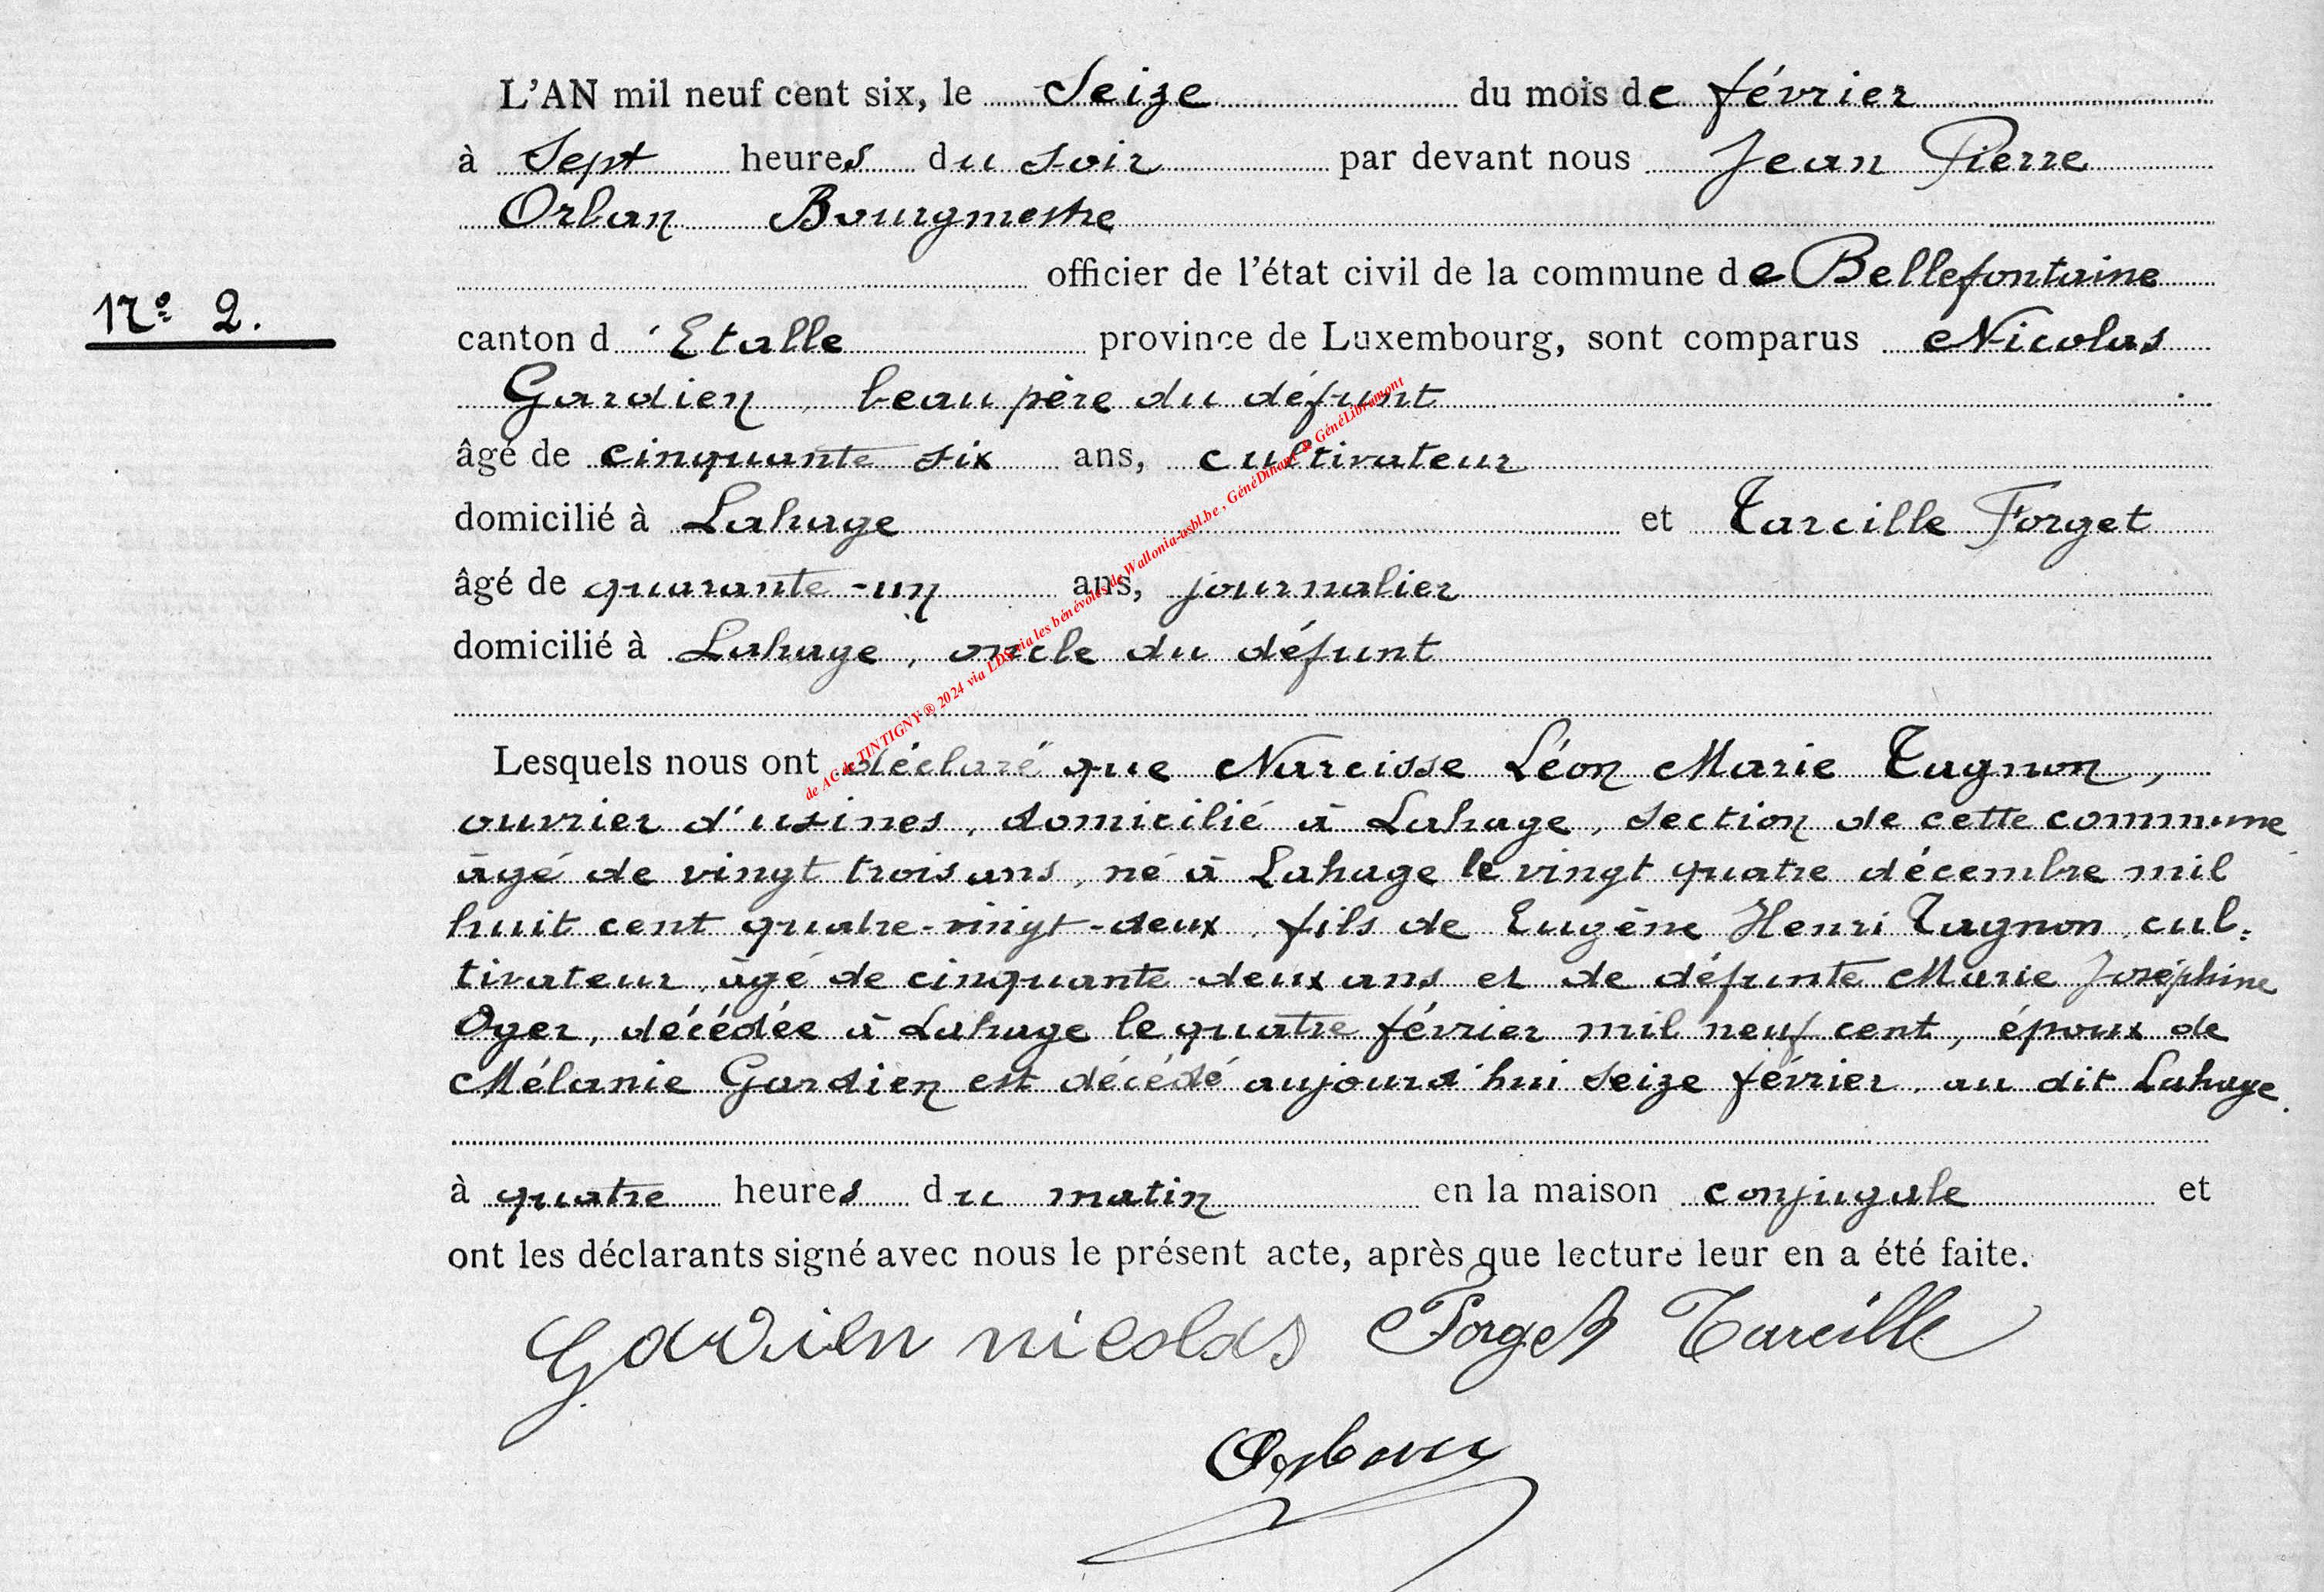 L'AN mil neuf cent six, le Seize du mois de février
à Sept heures du soir par devant nous Jean Pierre
Orban Bourgmestre
officier de l'état civil de la commune de Bellefontaine
N° 2.
canton d'Etalle province de Luxembourg, sont comparus Nicolas
Gardien, beau père du défunt
âgé de cinquante six ans, cultivateur
domicilié à Lahage et Tarcille Forget
âgé de quarante-un ans, journalier
domicilié à Lahage, oncle du défunt
de AC de TINTIGNY ® 2024 via LDS via les bénévoles de Wallonia-asbl.be, GénéDinant & GénéLibramont
Lesquels nous ont déclaré que Narcisse Léon Marie Tagnon,
ouvrier d'usines, domicilié à Lahage, section de cette commune
âgé de vingt trois ans, né à Lahage le vingt quatre décembre mil
huit cent quatre-vingt-deux, fils de Eugène Henri Tagnon, cul-
tivateur, âgé de cinquante-deux ans et de défunte Marie Joséphine
Oger, décédée à Lahage le quatre février mil neuf cent, époux de
Mélanie Gardien est décédé aujourd'hui seize février, au dit Lahage.
à quatre heures du matin en la maison conjugale et
ont les déclarants signé avec nous le présent acte, après que lecture leur en a été faite.
Gardien nicolas Forget Tarcille
Orban